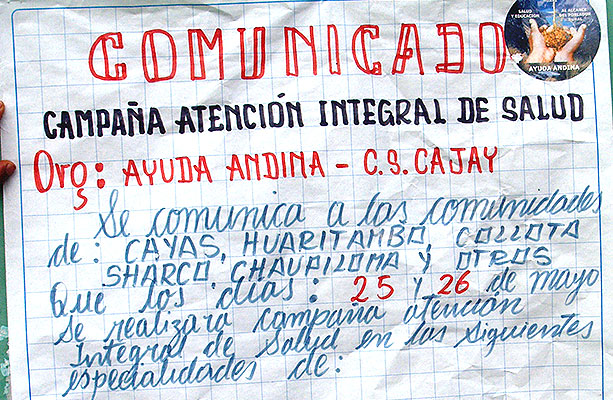 COMUNICADO
SALUD Y EDUCACION
AL ALCANCE DEL POBLADOR RURAL
AYUDA ANDINA
CAMPAÑA ATENCIÓN INTEGRAL DE SALUD
Orgs: AYUDA ANDINA - C.S. CAJAY
Se comunica a las comunidades
de: CAYAS, HUARITAMBO, COLLOTA
SHARCO, CHAUPILOMA Y OTROS
Que los días: 25 y 26 de mayo
Se realizara campaña atención
Integral de Salud en las siguientes
especialidades de: